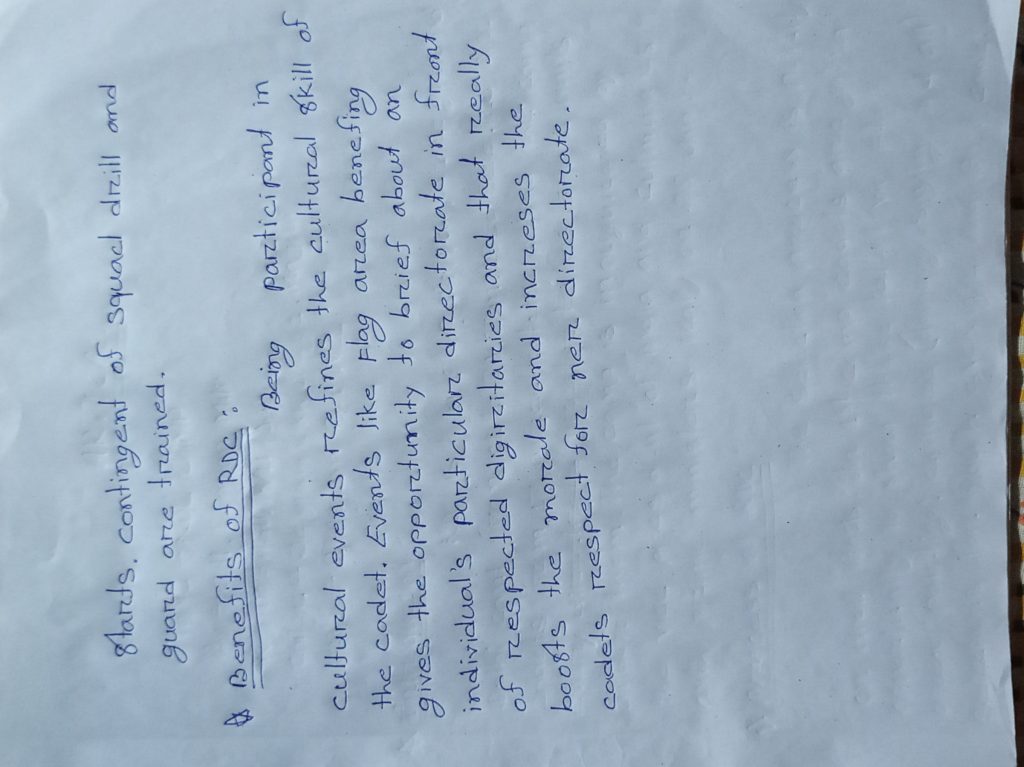 starts. contingent of squad drill and
guard are trained.
☆ Benefits of RDC :
Being participant in
cultural events refines the cultural skill of
the cadet. Events like Flag area benefing
gives the opportunity to brief about an
individual's particular directorate in front
of respected digiritaries and that really
boosts the morale and increses the
cadets respect for ner directorate.